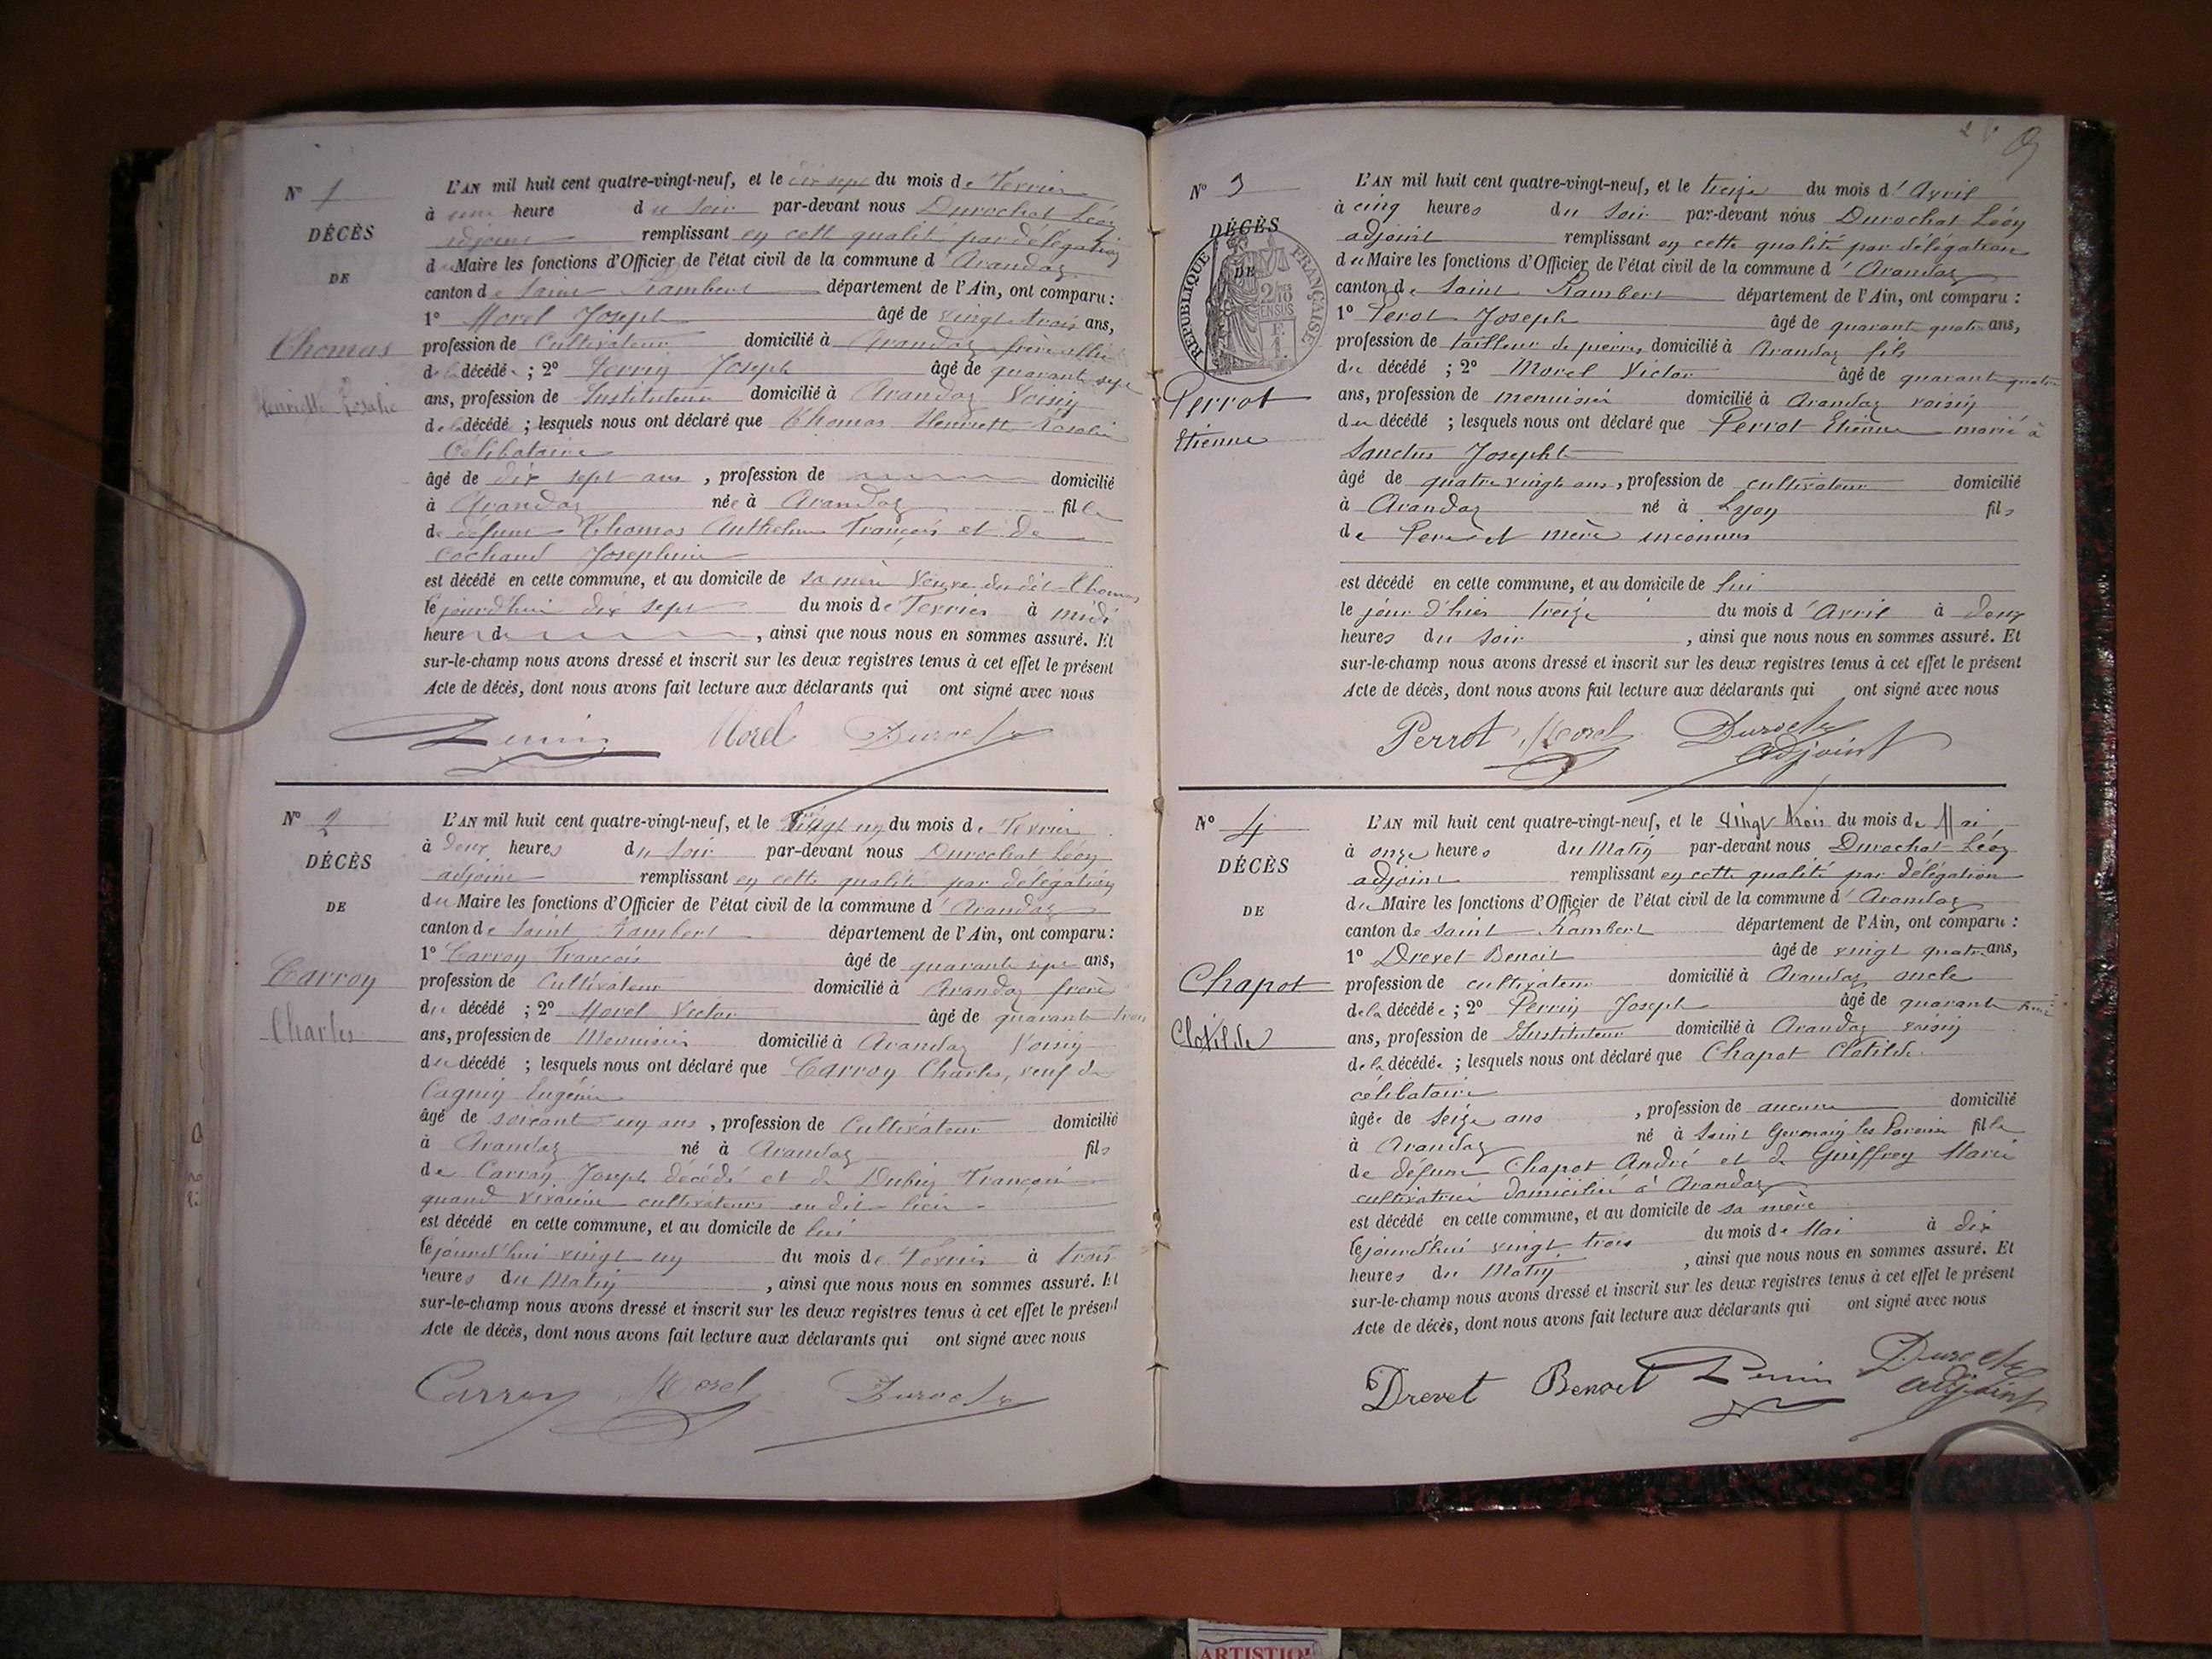 N° 1
DÉCÈS
DE
Thomas
Henriette Rosalie
L'AN mil huit cent quatre-vingt-neuf, et le dix sept du mois de Fevrier
à une heure du Soir par-devant nous Durochat Léon
adjoint remplissant en cett qualité par délégation
du Maire les fonctions d'Officier de l'état civil de la commune d'Arandaz
canton de Saint Rambert département de l'Ain, ont comparu :
1° Morel Joseph âgé de vingt trois ans,
profession de Cultivateur domicilié à Arandaz frère allié
de la décédée ; 2° Perrin Joseph âgé de quarante sept
ans, profession de Instituteur domicilié à Arandaz Voisin
de la décédé ; lesquels nous ont déclaré que Thomas Henriett Rosalie
Célibataire
âgé de dix sept ans , profession de domicilié
à Arandaz née à Arandaz fille
de défunt Thomas Anthelme François et de
Cochand Josephine
est décédé en cette commune, et au domicile de sa mère Veuve du dit Thomas
le jourd'hui dix sept du mois de Fevrier à midi
heure d , ainsi que nous nous en sommes assuré. Et
sur-le-champ nous avons dressé et inscrit sur les deux registres tenus à cet effet le présent
Acte de décès, dont nous avons fait lecture aux déclarants qui ont signé avec nous
Perrin Morel Durochat
N° 2
DÉCÈS
DE
Carroy
Charles
L'AN mil huit cent quatre-vingt-neuf, et le Vingt un du mois de Fevrier
à deux heures du Soir par-devant nous Durochat Léon
adjoint remplissant en cette qualité par délégation
du Maire les fonctions d'Officier de l'état civil de la commune d'Arandaz
canton de Saint Rambert département de l'Ain, ont comparu :
1° Carroy François âgé de quarante sept ans,
profession de Cultivateur domicilié à Arandaz frère
du décédé ; 2° Morel Victor âgé de quarante trois
ans, profession de Menuisier domicilié à Arandaz Voisin
du décédé ; lesquels nous ont déclaré que Carroy Charles, veuf de
Cagnin Eugénie
âgé de soixante un ans , profession de Cultivateur domicilié
à Arandaz né à Arandaz fils
de Carroy Joseph décédé et de Dubin Françoise
quand vivaient cultivateurs au dit lieu
est décédé en cette commune, et au domicile de lui
le jourd'hui vingt un du mois de Fevrier à trois
heures du Matin , ainsi que nous nous en sommes assuré. Et
sur-le-champ nous avons dressé et inscrit sur les deux registres tenus à cet effet le présent
Acte de décès, dont nous avons fait lecture aux déclarants qui ont signé avec nous
Carroy Morel Durochat
N° 3
DÉCÈS
DE
RÉPUBLIQUE FRANÇAISE
Perrot
Etienne
L'AN mil huit cent quatre-vingt-neuf, et le treize du mois d'Avril
à cinq heures du Soir par-devant nous Durochat Léon
adjoint remplissant en cette qualité par délégation
du Maire les fonctions d'Officier de l'état civil de la commune d'Arandaz
canton de Saint Rambert département de l'Ain, ont comparu :
1° Perot Joseph âgé de quarant quatre ans,
profession de tailleur de pierres domicilié à Arandaz fils
du décédé ; 2° Morel Victor âgé de quarante quatre
ans, profession de menuisier domicilié à Arandaz voisin
du décédé ; lesquels nous ont déclaré que Perrot Etienne marié à
Sanctus Josephte
âgé de quatre vingts ans , profession de cultivateur domicilié
à Arandaz né à Lyon fils
de Père et mère inconnus
est décédé en cette commune, et au domicile de lui
le jour d'hier treize du mois d'Avril à deux
heures du Soir , ainsi que nous nous en sommes assuré. Et
sur-le-champ nous avons dressé et inscrit sur les deux registres tenus à cet effet le présent
Acte de décès, dont nous avons fait lecture aux déclarants qui ont signé avec nous
Perrot Morel Durochat
adjoint
N° 4
DÉCÈS
DE
Chapot
Clotilde
L'AN mil huit cent quatre-vingt-neuf, et le vingt trois du mois de Mai
à onze heures du Matin par-devant nous Durochat Léon
adjoint remplissant en cette qualité par délégation
du Maire les fonctions d'Officier de l'état civil de la commune d'Arandaz
canton de Saint Rambert département de l'Ain, ont comparu :
1° Drevet Benoit âgé de vingt quatre ans,
profession de cultivateur domicilié à Arandaz oncle
de la décédée ; 2° Perrin Joseph âgé de quarante
ans, profession de Instituteur domicilié à Arandaz voisin
de la décédée ; lesquels nous ont déclaré que Chapot Clotilde
célibataire
âgée de seize ans , profession de aucune domicilié
à Arandaz né à Saint Germain les Paroisse fille
de défunt Chapot André et de Guiffrey Marie
cultivatrice domiciliée à Arandaz
est décédé en cette commune, et au domicile de sa mère
le jourd'hui vingt trois du mois de Mai à dix
heures du Matin , ainsi que nous nous en sommes assuré. Et
sur-le-champ nous avons dressé et inscrit sur les deux registres tenus à cet effet le présent
Acte de décès, dont nous avons fait lecture aux déclarants qui ont signé avec nous
Drevet Benoit Perrin Durochat
adjoint
ARTISTIQ